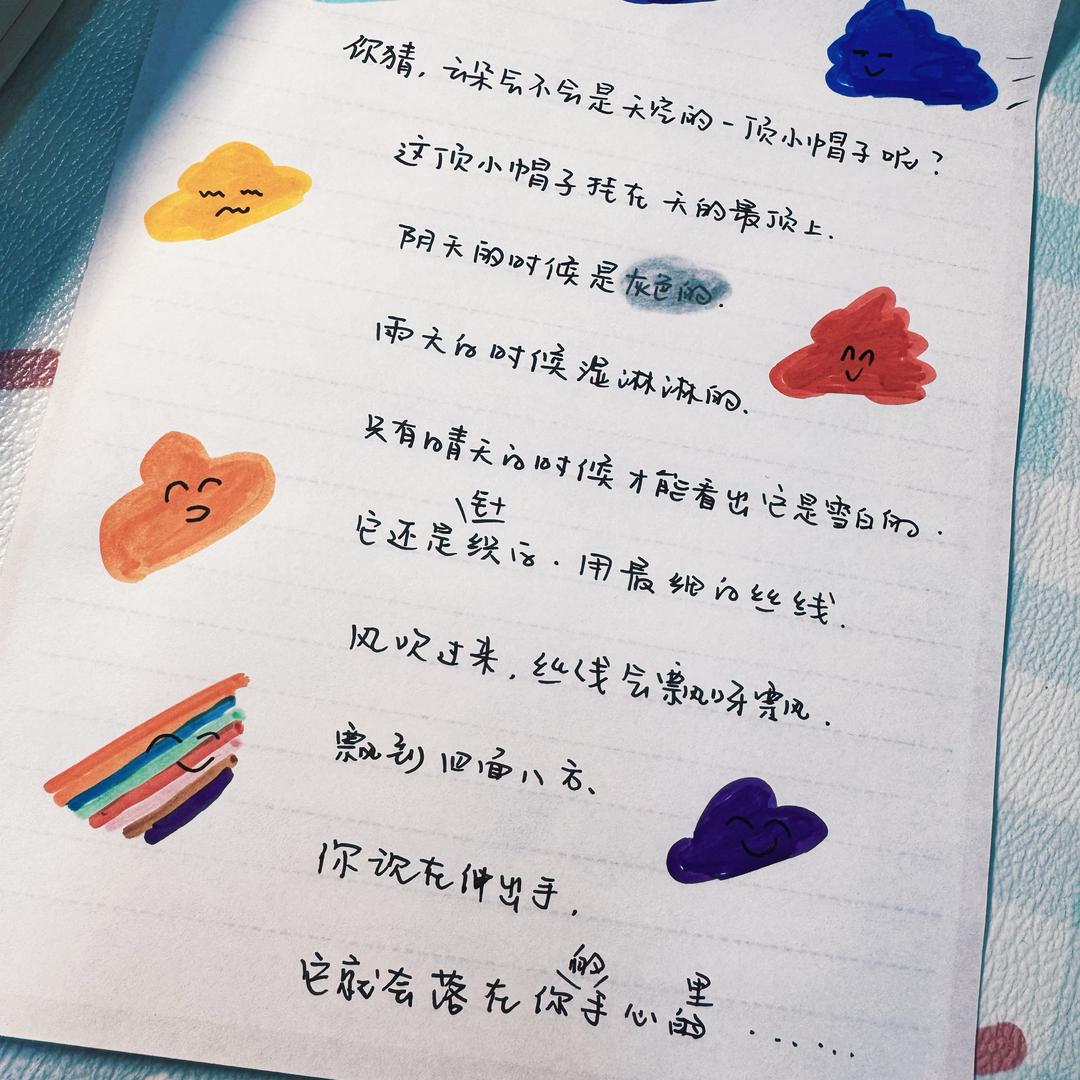 你猜，云朵会不会是天空的一顶小帽子呢？
这顶小帽子挂在天的最顶上.
阴天的时候是灰色的.
雨天的时候湿淋淋的.
只有晴天的时候才能看出它是雪白的.
针
它还是织的.用最细的丝线.
风吹过来，丝线会飘呀飘.
飘到四面八方、
你现在伸出手，
的 里
它就会落在你手心的......